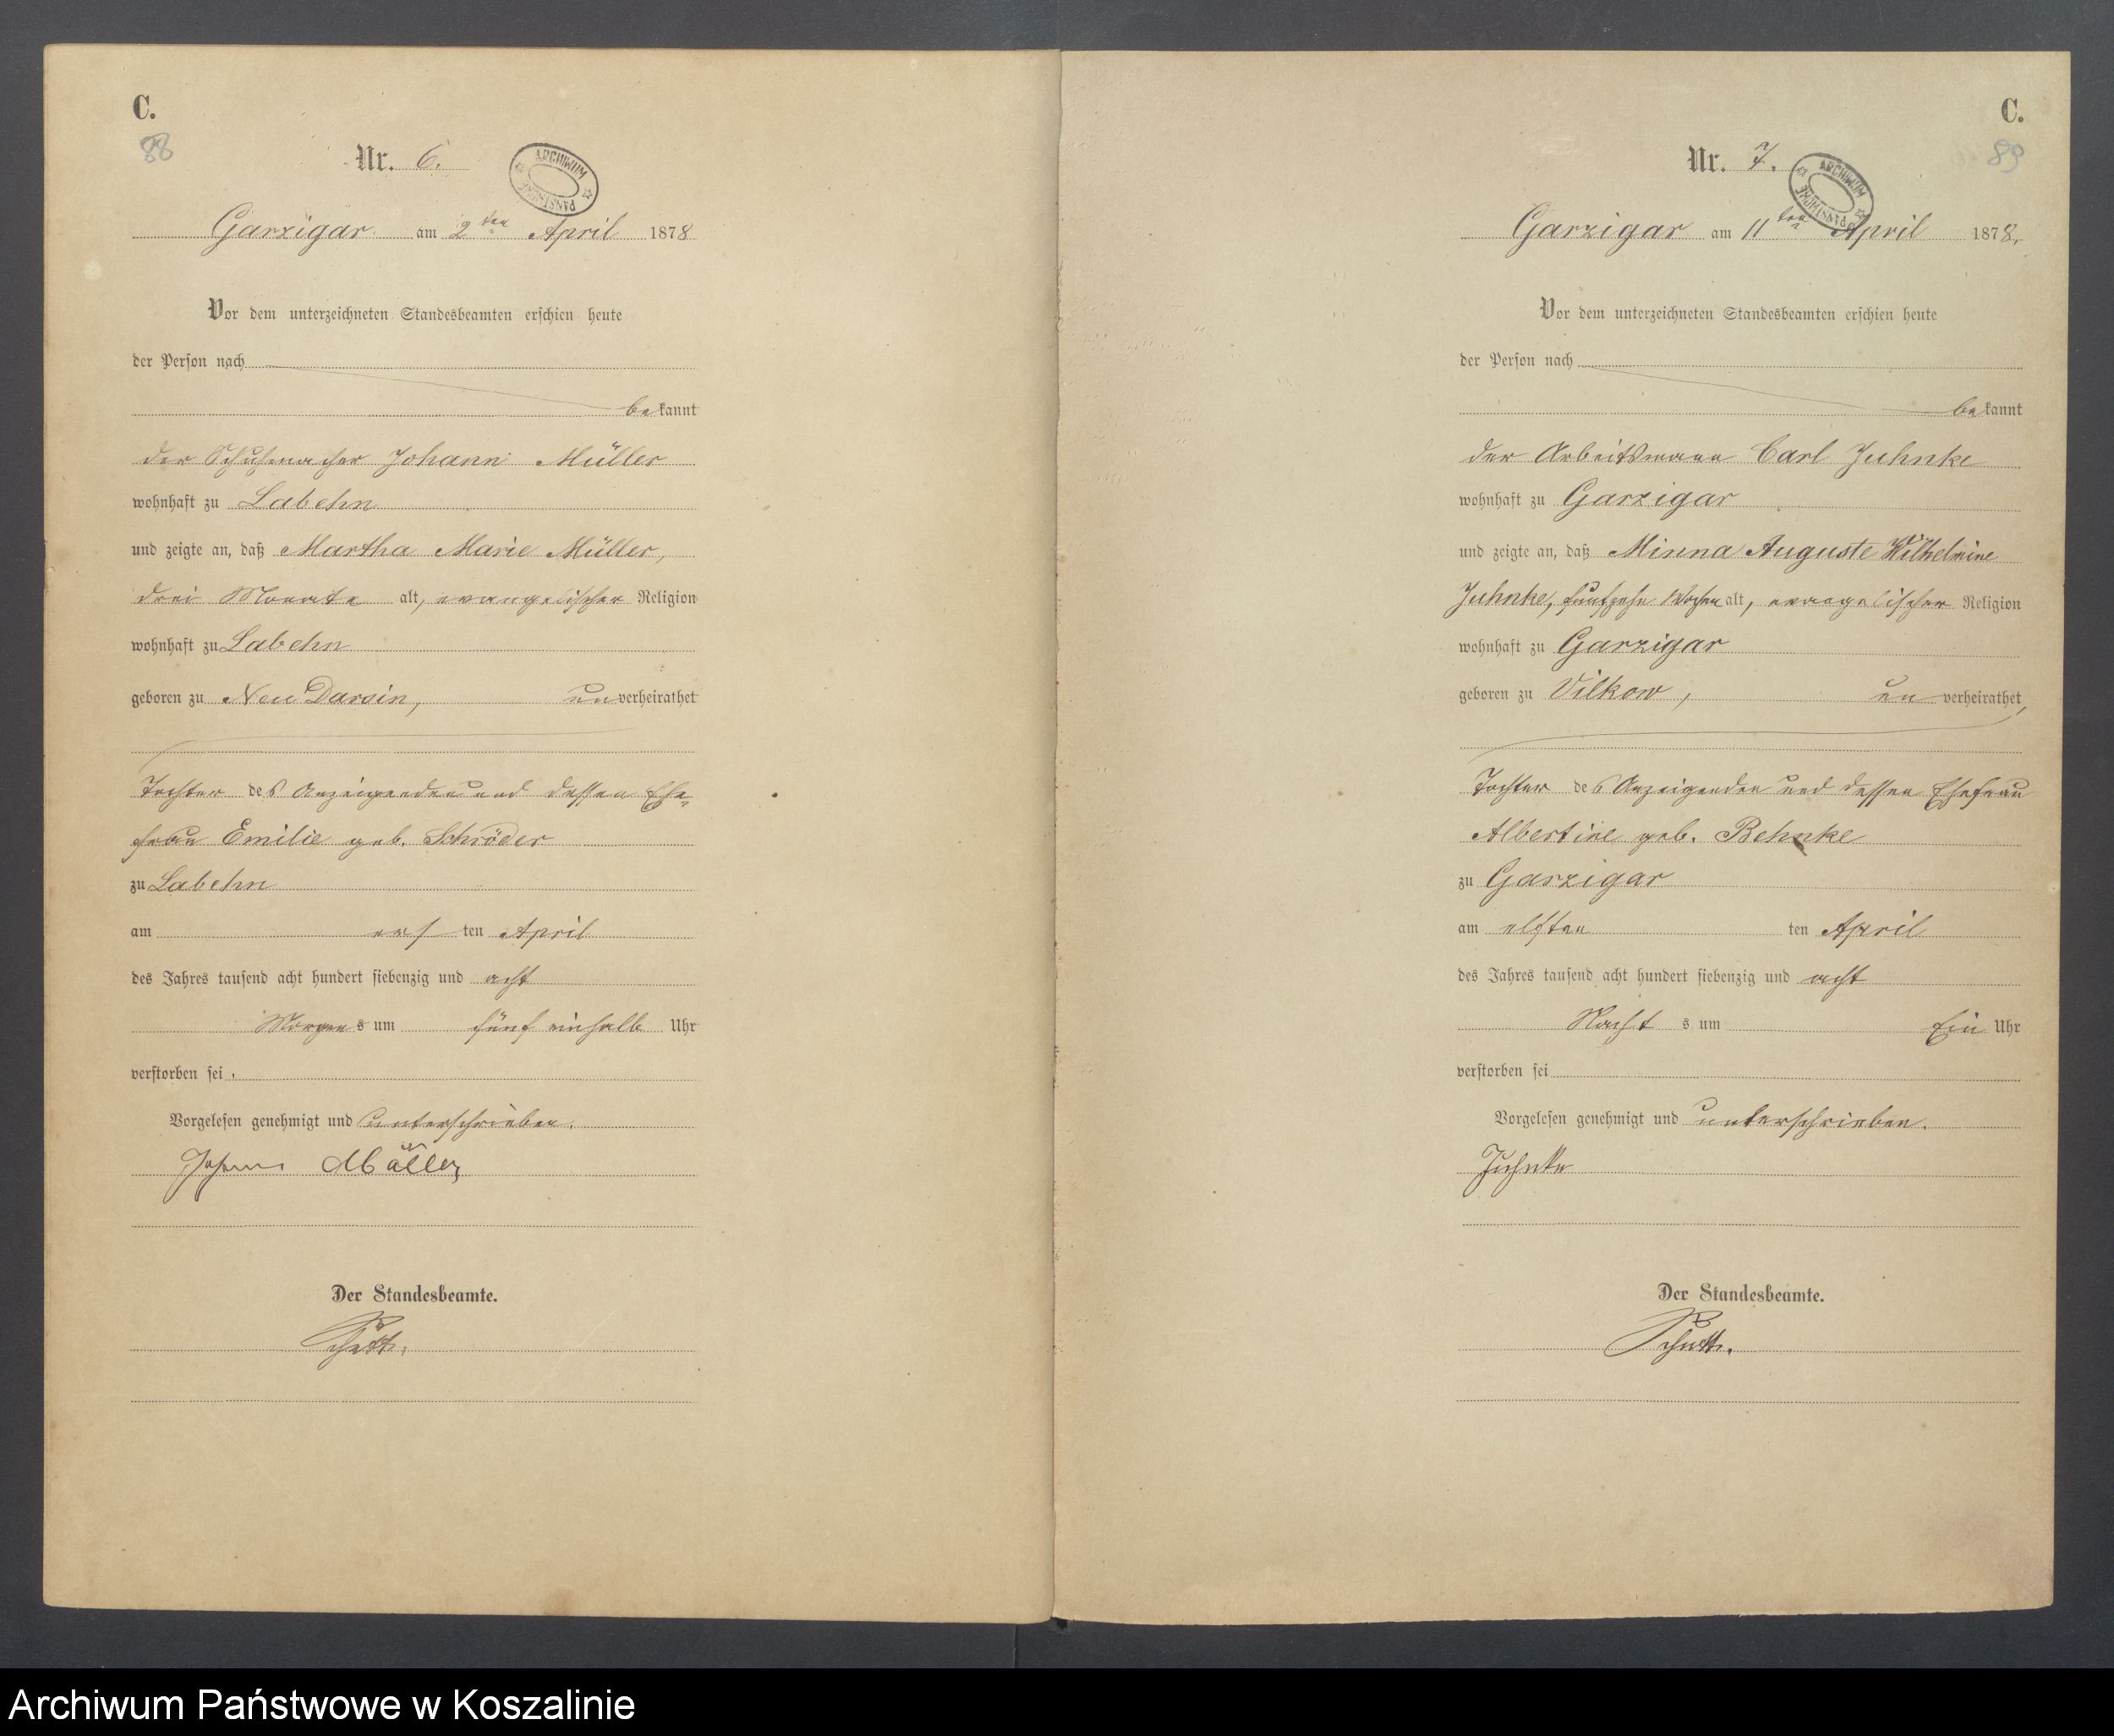 C.
88
Nr. 6.
ARCHIWUM PAŃSTWOWE
Garzigar am 2ten April 1878
Vor dem unterzeichneten Standesbeamten erschien heute
der Person nach
bekannt
der Schuhmacher Johann Müller
wohnhaft zu Labehn
und zeigte an, daß Martha Marie Müller,
drei Monate alt, evangelischer Religion
wohnhaft zu Labehn
geboren zu Neu Darsin, unverheirathet
Tochter des Anzeigenden und dessen Ehe-
frau Emilie geb. Schröder
zu Labehn
am ersten April
des Jahres tausend acht hundert siebenzig und acht
Morgens um fünf einhalb Uhr
verstorben sei.
Vorgelesen genehmigt und unterschrieben.
Johann Müller
Der Standesbeamte.
C.
89
Nr. 7.
ARCHIWUM PAŃSTWOWE
Garzigar am 11ten April 1878.
Vor dem unterzeichneten Standesbeamten erschien heute
der Person nach
bekannt
der Arbeitsmann Carl Juhnke
wohnhaft zu Garzigar
und zeigte an, daß Minna Auguste Wilhelmine
Juhnke, fünfzehn Wochen alt, evangelischer Religion
wohnhaft zu Garzigar
geboren zu Vilkow, unverheirathet,
Tochter des Anzeigenden und dessen Ehefrau
Albertine geb. Behnke
zu Garzigar
am elften ten April
des Jahres tausend acht hundert siebenzig und acht
Nachts um Ein Uhr
verstorben sei
Vorgelesen genehmigt und unterschrieben.
Juhnke
Der Standesbeamte.
Archiwum Państwowe w Koszalinie